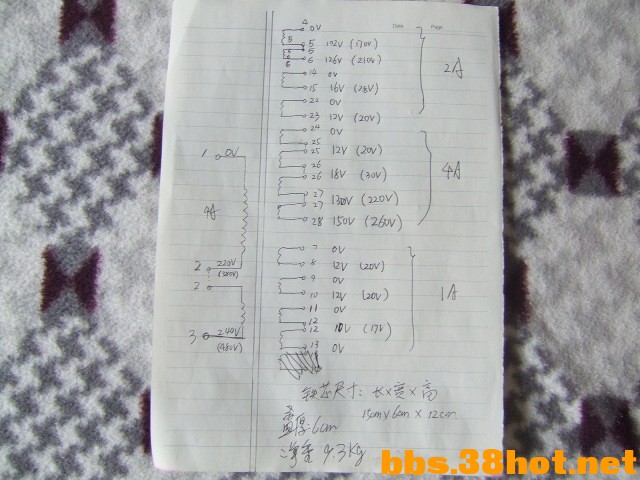 Date Page
4 0V
5 5 102V (170V)
5
6 6 126V (210V)
14 0V
15 16V (28V)
22 0V
23 12V (20V)
2A
24 0V
25
25 12V (20V)
26
26 18V (30V)
27
27 130V (220V)
28 150V (260V)
4A
7 0V
8 12V (20V)
9 0V
10 12V (20V)
11 0V
12
12 10V (17V)
13 0V
1A
1 0V
4A
2 220V
2
3 240V
(480V)
铁芯尺寸: 长×宽×高
15cm×6cm×12cm
直径:6cm
净重 9.3Kg
bbs.38hot.net